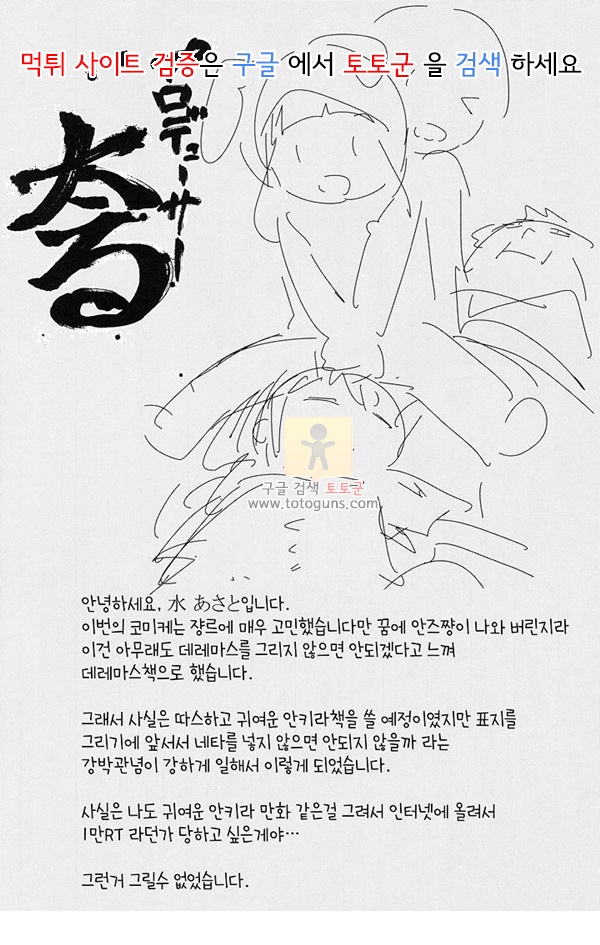 먹튀 사이트 검증은 구글 에서 토토군 을 검색 하세요
プロデューサー
奢る
구글 검색 토토군
www.totoguns.com
안녕하세요, 水 あさと입니다.
이번의 코미케는 쟝르에 매우 고민했습니다만 꿈에 안즈쨩이 나와 버린지라
이건 아무래도 데레마스를 그리지 않으면 안되겠다고 느껴
데레마스책으로 했습니다.
그래서 사실은 따스하고 귀여운 안키라책을 쓸 예정이였지만 표지를
그리기에 앞서서 네타를 넣지 않으면 안되지 않을까 라는
강박관념이 강하게 일해서 이렇게 되었습니다.
사실은 나도 귀여운 안키라 만화 같은걸 그려서 인터넷에 올려서
1만RT 라던가 당하고 싶은게야…
그런거 그릴수 없었습니다.